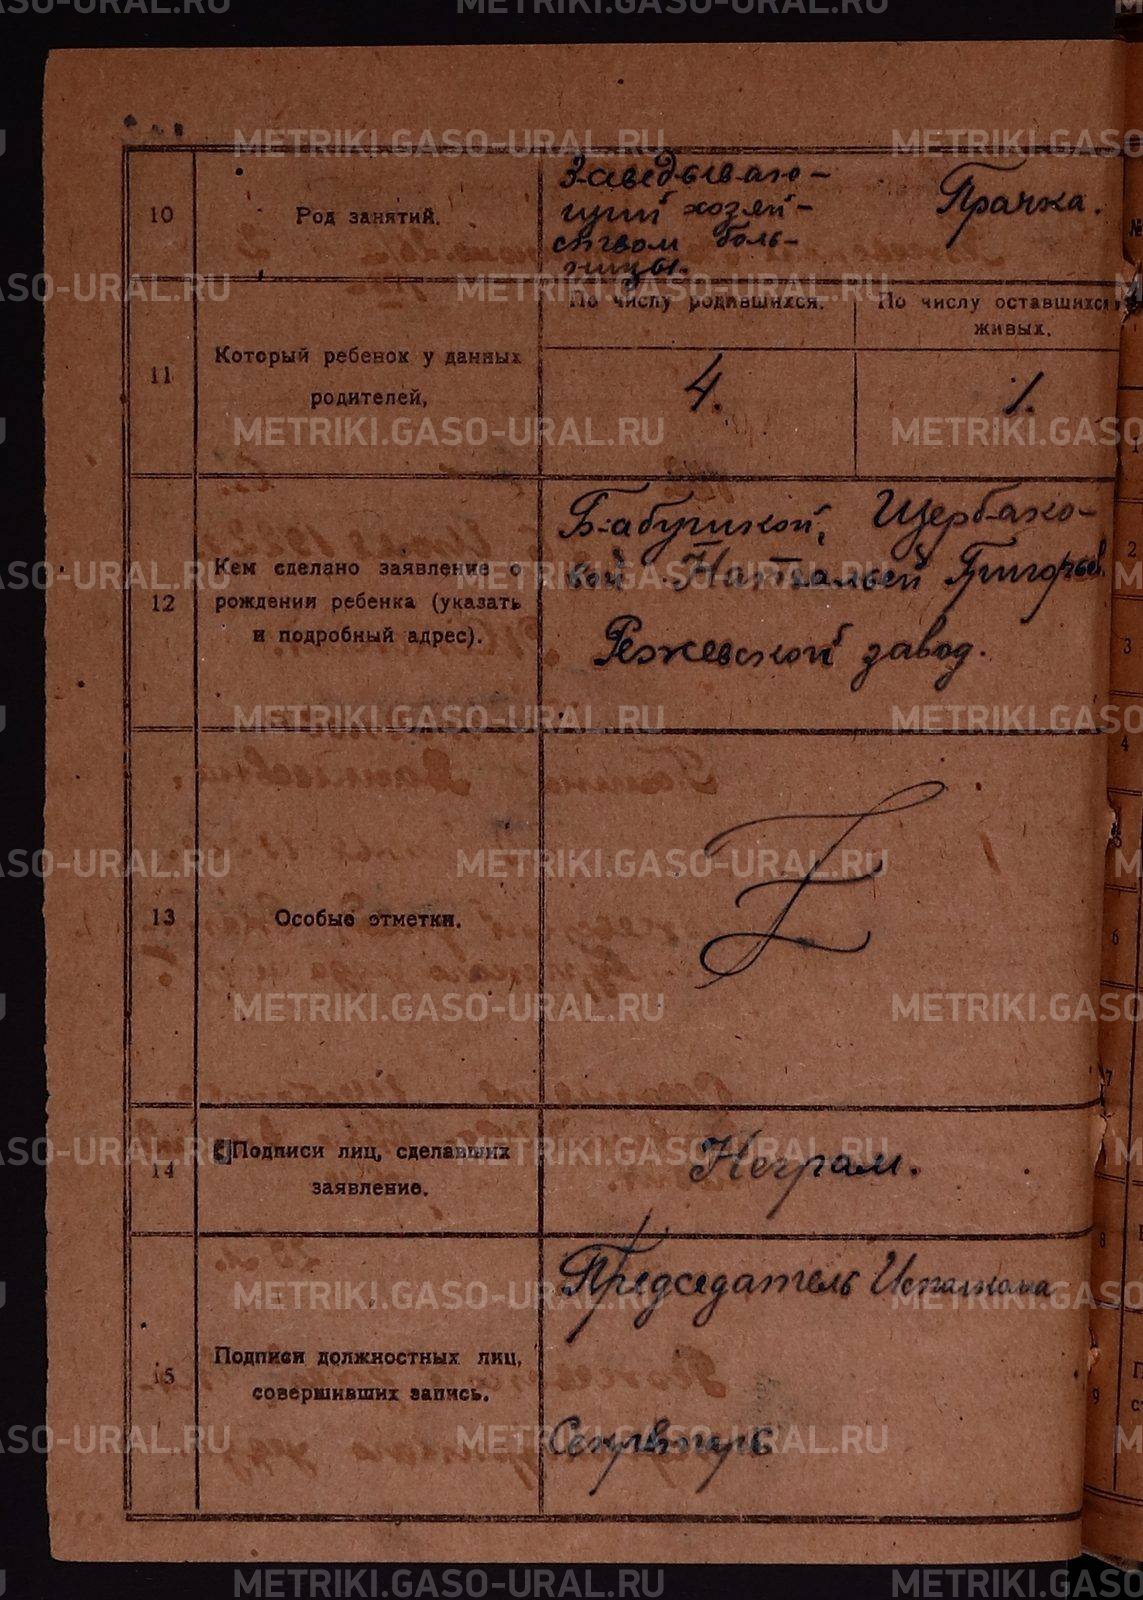 METRIKI.GASO-URAL.RU
10
Род занятий.
Заведываю-
щий хозяй-
ством боль-
ницы.
Прачка.
11
Который ребенок у данных
родителей,
По числу родившихся.
По числу оставшихся
живых.
4.
1.
12
Кем сделано заявление о
рождении ребенка (указать
и подробный адрес).
Бабушкой, Щербако-
вой Натальей Григорьев.
Режевской завод.
13
Особые отметки.
14
Подписи лиц, сделавших
заявление.
Неграм.
15
Подписи должностных лиц,
совершивших запись.
Председатель Исполкома
Секретарь